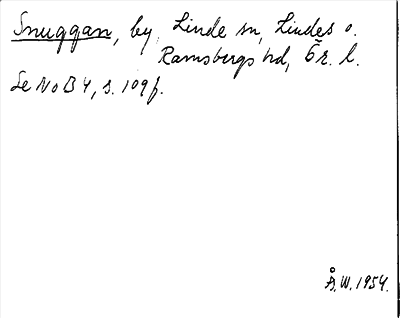 Snuggan, by, Linde sn, Lindes o.
Ramsbergs hd, Ör. l.
Se NoB 4, s. 109 f.
Å.W. 1954.